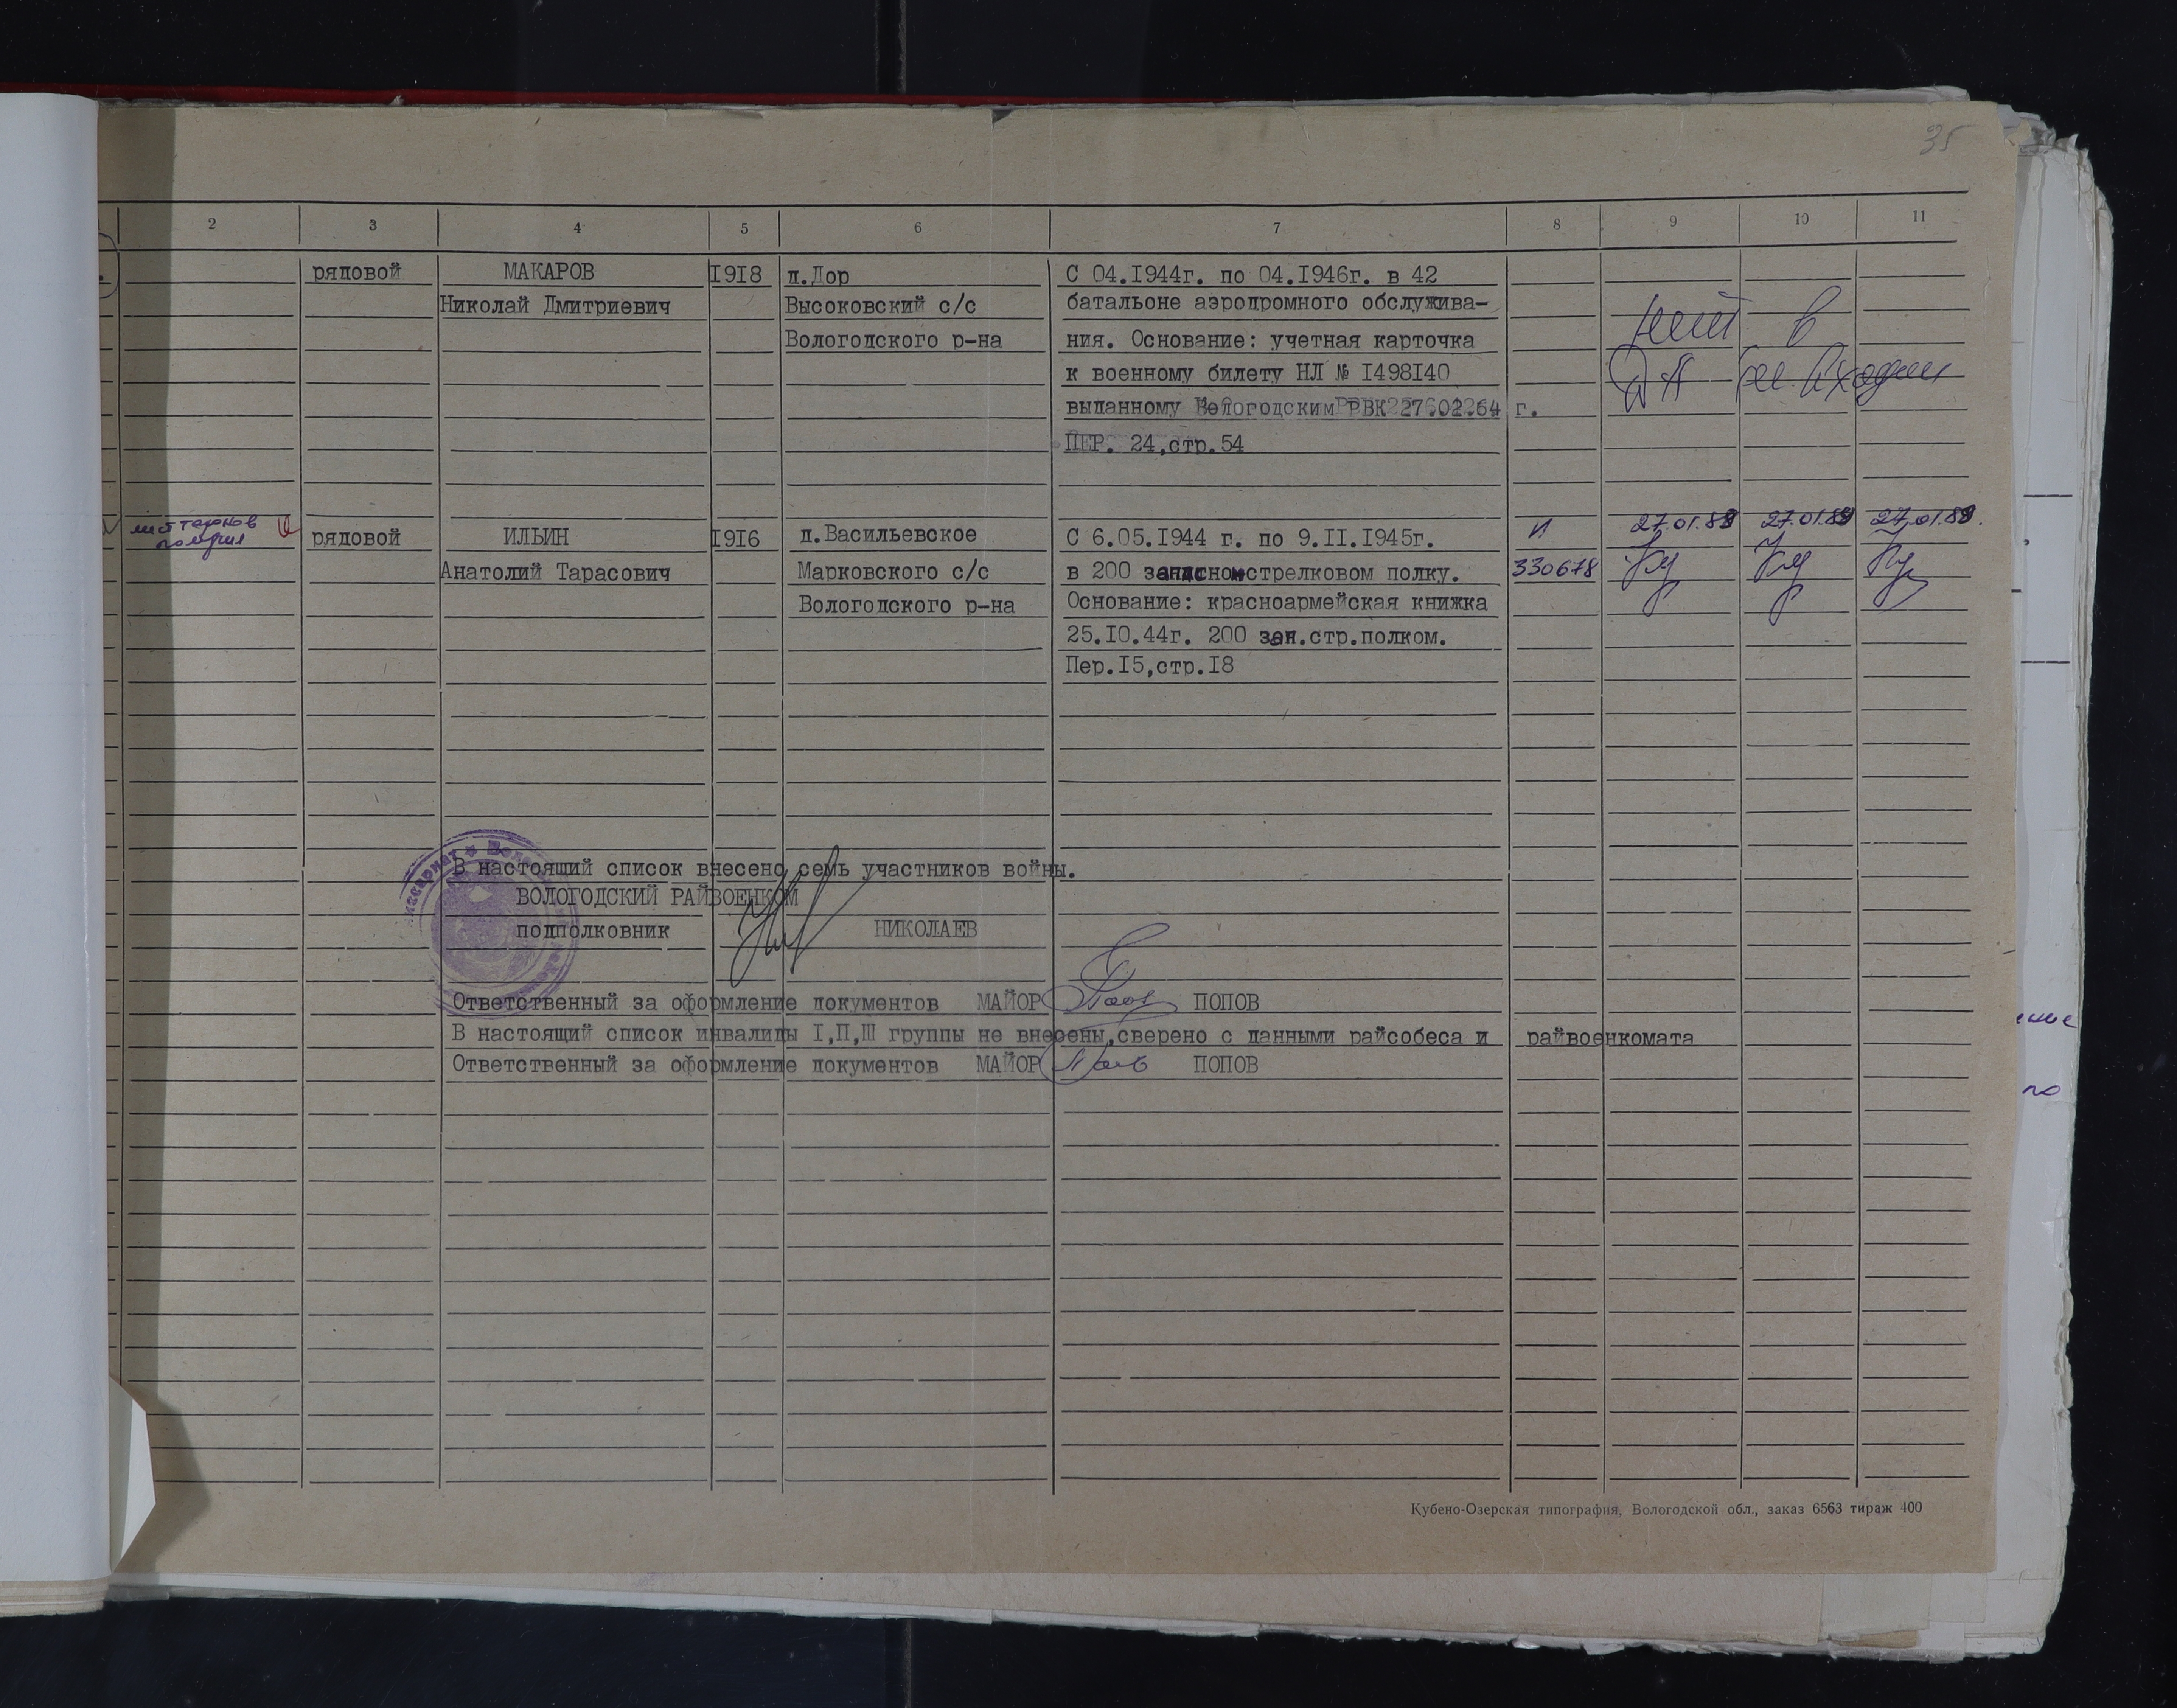 35
2 3 4 5 6 7 8 9 10 11
рядовой МАКАРОВ 1918 д.Дор С 04.1944г. по 04.1946г. в 42
Николай Дмитриевич Высоковский с/с батальоне аэродромного обслужива-
Вологодского р-на ния. Основание: учетная карточка
к военному билету НЛ № 1498140
выданному Вологодским РВК 27602264 г.
ПЕР. 24,стр.54
рядовой ИЛЬИН 1916 д.Васильевское С 6.05.1944 г. по 9.11.1945г. И 27.01.89 27.01.89 27.01.89.
Анатолий Тарасович Марковского с/с в 200 запасном стрелковом полку. 330678
Вологодского р-на Основание: красноармейская книжка
25.10.44г. 200 зап.стр.полком.
Пер.15,стр.18
В настоящий список внесено семь участников войны.
ВОЛОГОДСКИЙ РАЙВОЕНКОМ
подполковник НИКОЛАЕВ
Ответственный за оформление документов МАЙОР ПОПОВ
В настоящий список инвалиды I,П,Ш группы не внесены,сверено с данными райсобеса и райвоенкомата
Ответственный за оформление документов МАЙОР ПОПОВ
Кубено-Озерская типография, Вологодской обл., заказ 6563 тираж 400